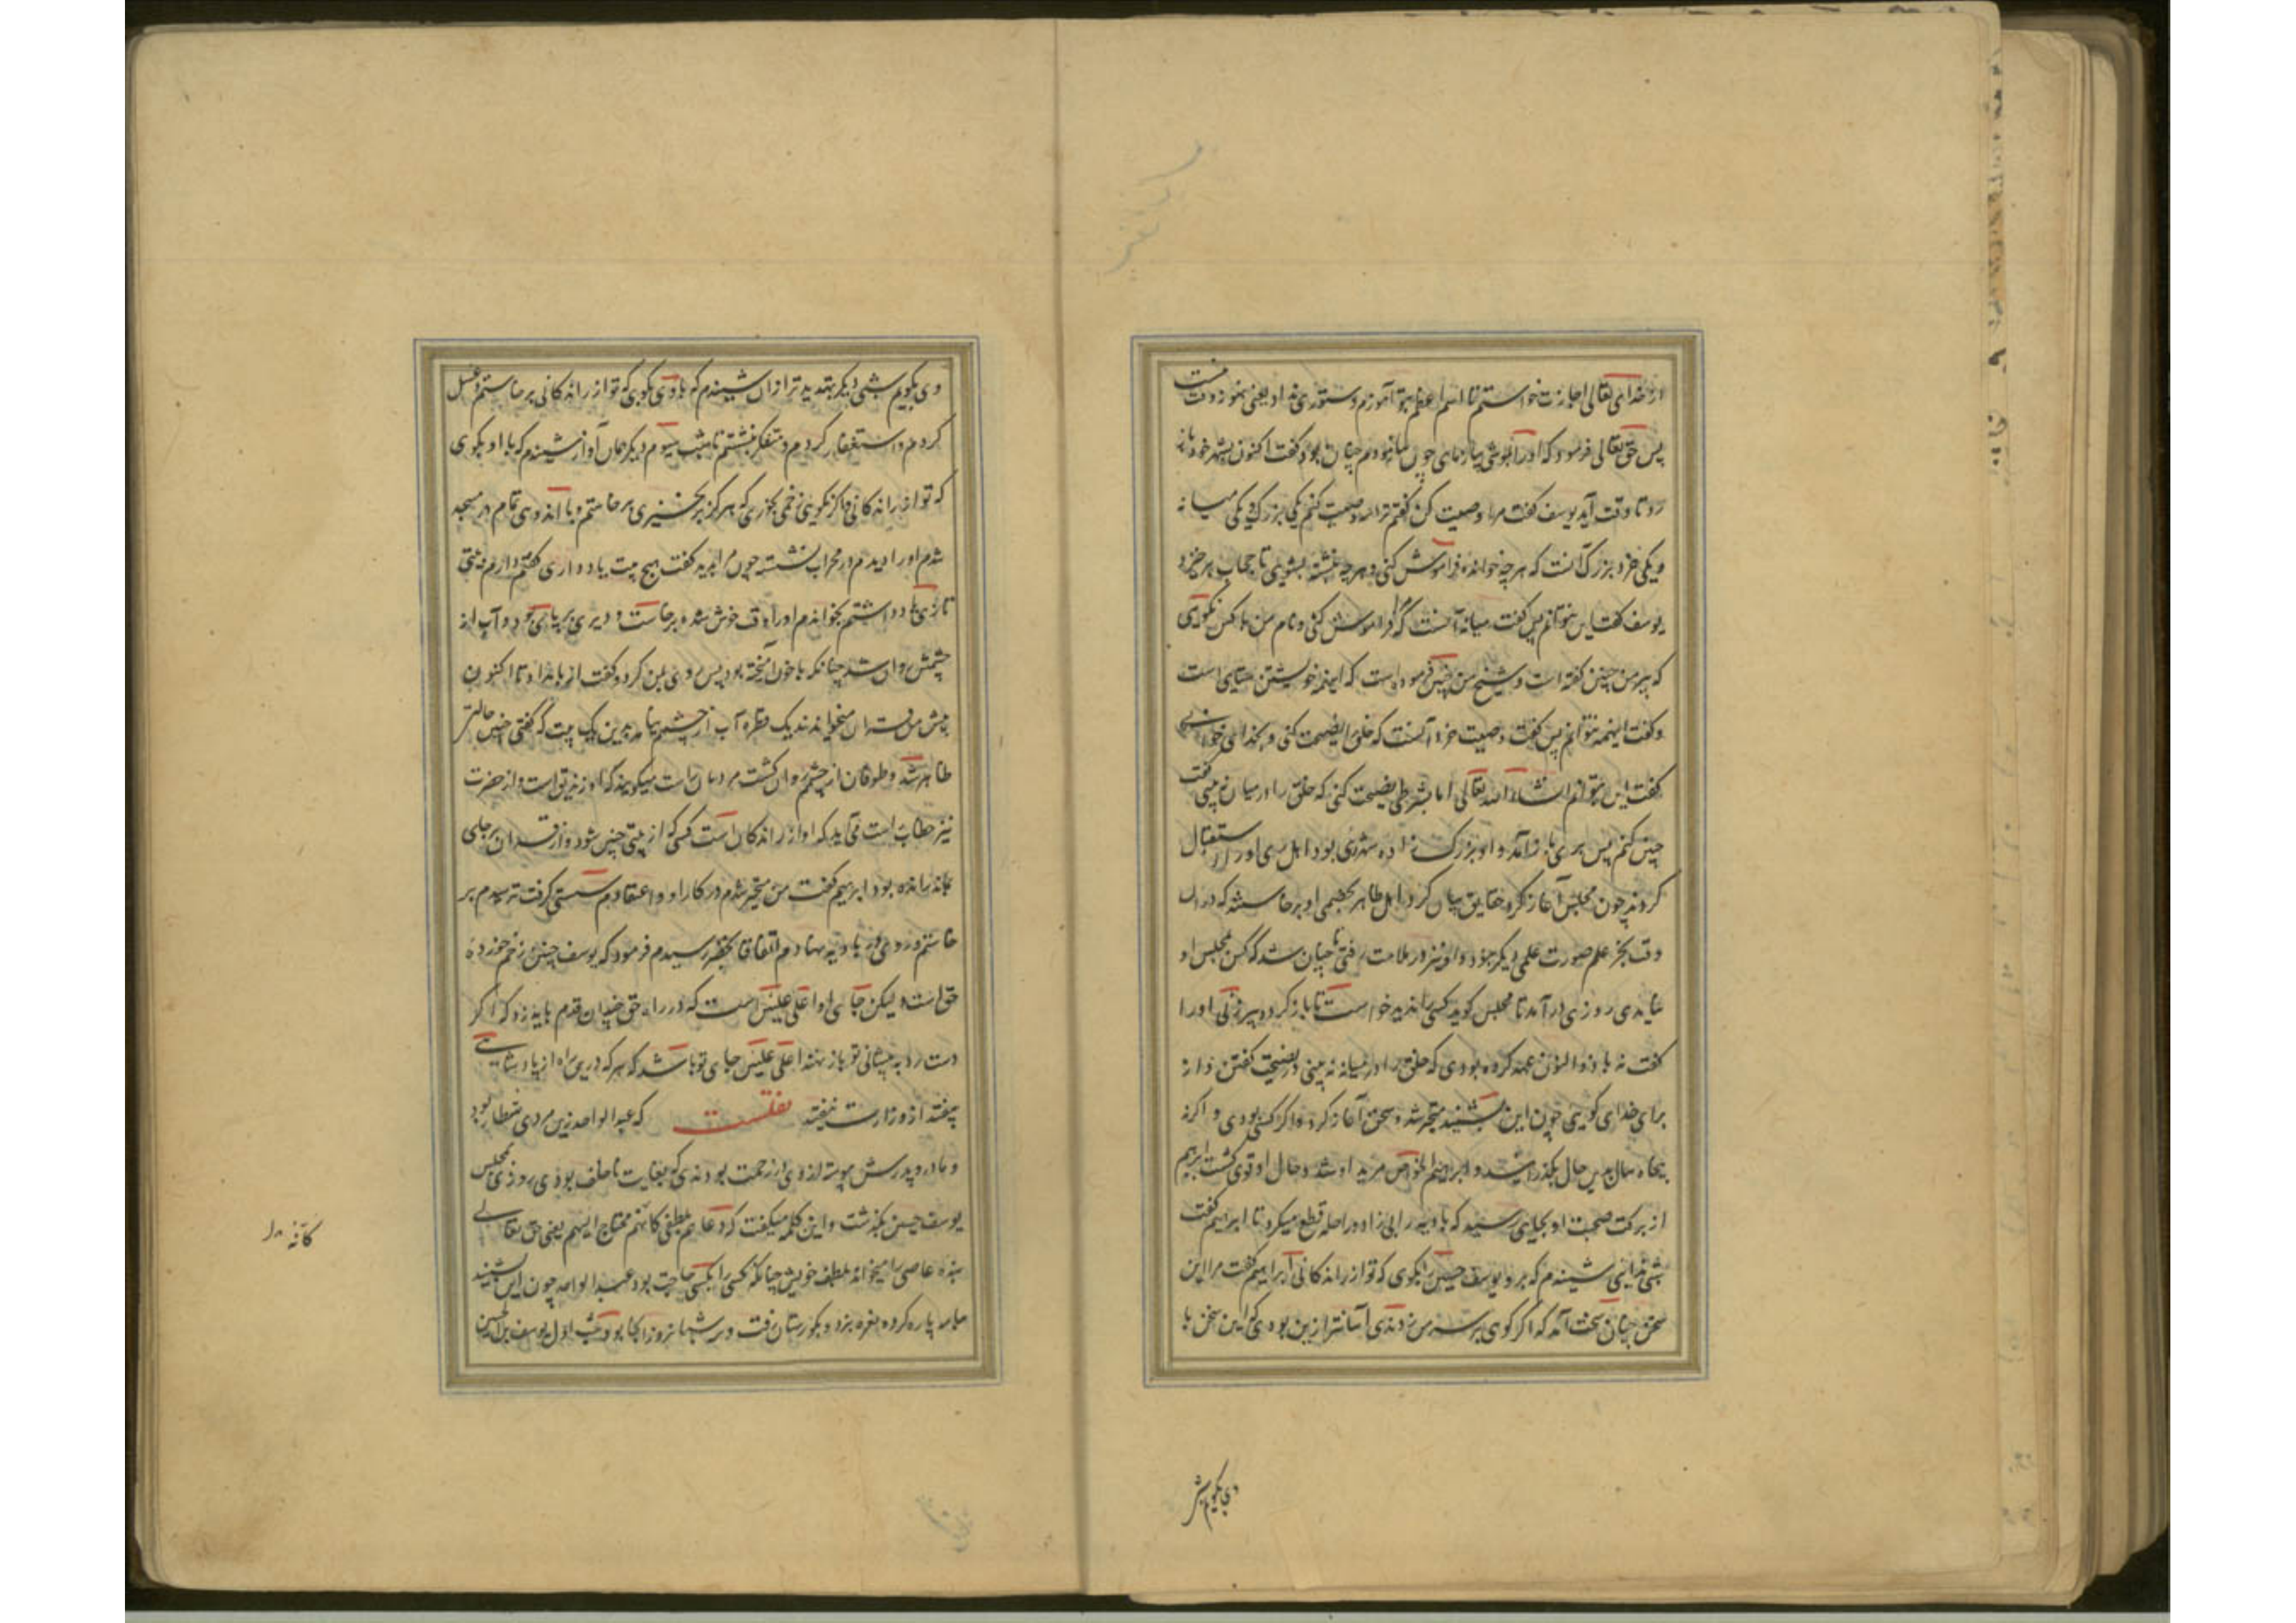 از خدای تعالی اجازت خواستم تا اسم اعظم بتو آموزم دستوری نداد یعنی هنوز وقت نیست
پس حق تعالی فرمود که او را بموشی بیازمای چون بیازمودم چنان بود و گفت اکنون بشهر خود باز
رو تا وقت آید یوسف گفت مرا وصیت کن گفتم ترا سه وصیت کنم یکی بزرگ و یکی میانه
و یکی خرد بزرگ آنست که هر چه خوانده فراموش کنی و هر چه نبشته بشویی تا حجاب برخیزد
یوسف گفت این نتوانم پس گفت میانه آنست که مرا فراموش کنی و نام من با کس نگویی
که پیر من چنین گفته است و شیخ من چنین فرموده است که اینهمه خویشتن ستایی است
و گفت اینهمه نتوانم پس گفت وصیت خرد آنست که خلق را نصیحت کنی و بخدای خوانی
گفت این بتوانم انشاء الله تعالی اما بشرطی نصیحت کنی که خلق را در میان نه بینی گفت
چنین کنم پس بری باز آمد و او بزرگ زاده شهر ری بود اهل ری او را استقبال
کردند چون مجلس آغاز کرد حقایق بیان کرد اهل ظاهر بخصمی او برخاستند که در آن
وقت بجز علم صورت علمی دیگر نبود و او نیز در ملامت رفتی تا چنان شد که کس بمجلس او
نیامدی روزی در آمد تا مجلس گوید کسی را ندید خواست تا باز گردد پیرزنی او را
گفت نه با ذوالنون عهد کرده بودی که خلق را در میانه نه بینی در نصیحت گفتن و از
برای خدای گویی چون این بشنید متحیر شد و سخن آغاز کرد اگر کسی بودی و اگر نه
پنجاه سال بدین حال بگذرانید و ابراهیم خواص مرید او شد و حال او قوی گشت ابراهیم
از برکت صحبت او بجایی رسید که بادیه را بی زاد و راحله قطع میکرد تا ابراهیم گفت
شبی ندایی شنیدم که برو یوسف حسین را بگوی که تو از راندگانی ابراهیم گفت مرا این
سخن چنان سخت آمد که اگر کوهی بر سر من زدندی آسانتر از ین بودی که این سخن با
وی بگویم شبی
وی بگویم شبی دیگر بتهدید تر از آن شنیدم که با وی بگوی که تو از راندگانی برخاستم و غسل
کردم و استغفار کردم و متفکر بنشستم تا شب سیوم دیگر همان آواز شنیدم که با او بگوی
که تو از راندگانی و اگر نگویی زخمی بخوری که هرگز برنخیزی برخاستم و با اندوهی تمام در مسجد
شدم او را دیدم در محراب نشسته چون مرا بدید گفت هیچ بیت یاد داری گفتم دارم بیتی
تازی یاد داشتم بخواندم او را وقت خوش شده برخاست و دیری بر پای بود و آب از
چشمش روان شد چنانکه با خون آمیخته بود پس روی بمن کرد و گفت از بامداد تا اکنون
پیش من قرآن میخواندند یک قطره آب از چشمم نیامد بدین یک بیت که گفتی چنین حالتی
ظاهر شد و طوفان از چشم روان گشت مردمان راست میگویند که او زندیق است و از حضرت
نیز خطاب راست می آید که او از راندگان است کسی که از بیتی چنین شود و از قرآن بر جای
بماند رانده بود ابراهیم گفت من متحیر شدم در کار او و اعتقادم سستی گرفت ترسیدم بر
خاستم و روی در بادیه نهادم اتفاقا بخضر رسیدم فرمود که یوسف حسین زخم خورده
حق است ولیکن جای او اعلی علیین است که در راه حق چندان قدم باید زد که اگر
دست رد به پیشانی تو باز نهند اعلی علیین جای تو باشد که هر که درین راه از پادشاهی
بیفتد از وزارت نیفتد نقلست که عبد الواحد زین مردی شطار بود
و مادر و پدرش پیوسته از وی در زحمت بودندی که بغایت ناخلف بودی روزی بمجلس
یوسف حسین بگذشت و این کلمه میگفت که دعاهم بلطفه کانه محتاج الیهم یعنی حق تعالی
بنده عاصی را میخواند بلطف خویش چنانکه کسی را بکسی حاجت بود عبد الواحد چون این بشنید
جامه پاره کرد و نعره بزد و بگورستان رفت و سه شبانروز آنجا بود شب اول یوسف بن الحسین
کانه